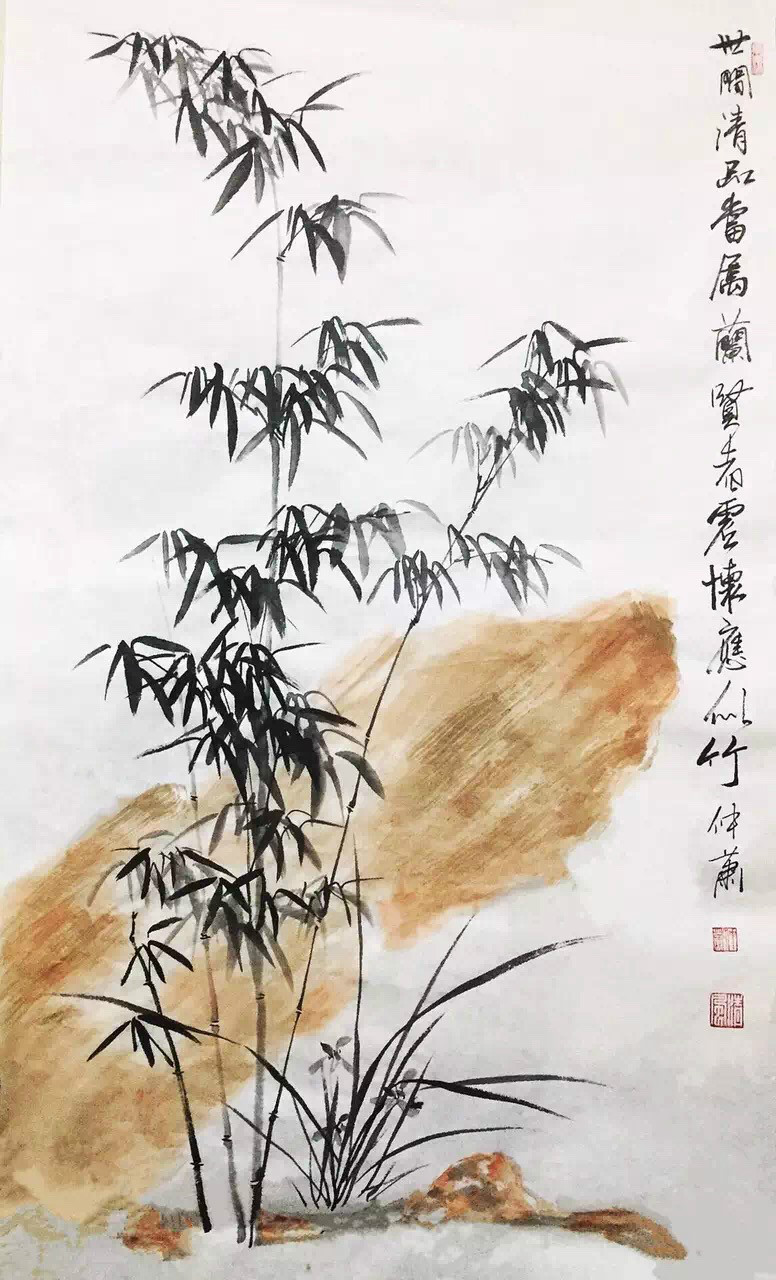 世間清品當属蘭賢者虛懷應似竹 仲蕭